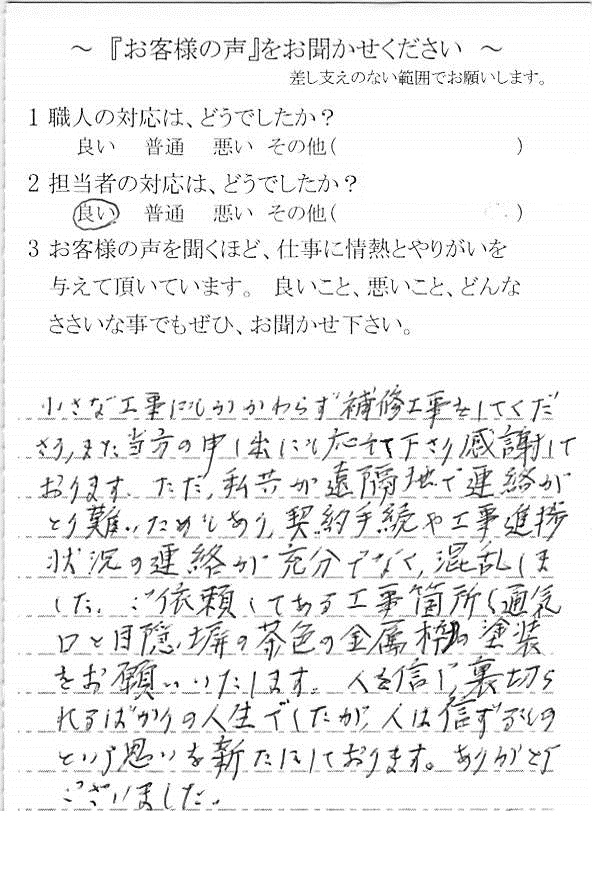 ～『お客様の声』をお聞かせください ～
差し支えのない範囲でお願いします。
1 職人の対応は、どうでしたか？
良い 普通 悪い その他( )
2 担当者の対応は、どうでしたか？
良い 普通 悪い その他( )
3 お客様の声を聞くほど、仕事に情熱とやりがいを
与えて頂いています。 良いこと、悪いこと、どんな
ささいな事でもぜひ、お聞かせ下さい。
小さな工事にもかかわらず補修工事をしてくだ
さり、また当方の申し出にも応せて下さり感謝して
おります。ただ、私共が遠隔地で連絡が
とり難いためもあり、契約手続や工事進捗
状況の連絡が充分でなく、混乱しま
した。ご依頼してある工事箇所(通気
口と目隠し塀の茶色の金属枠)の塗装
をお願いいたします。人を信じ、裏切ら
れるばかりの人生でしたが、人は信ずるもの
という思いを新たにしております。ありがとう
ございました。